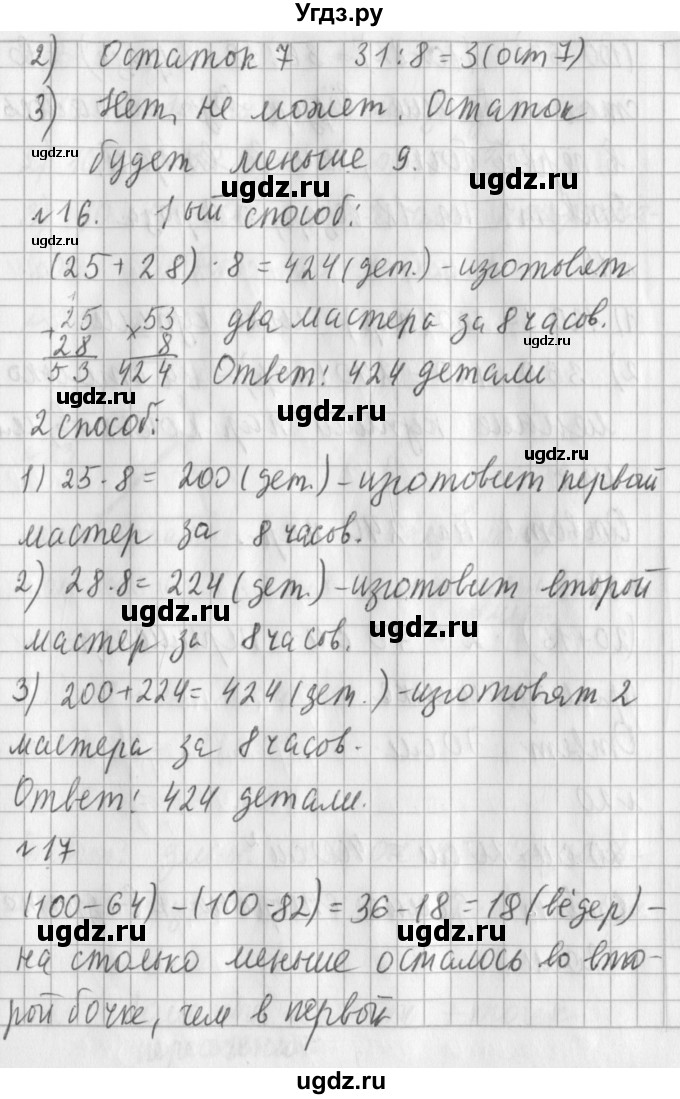 Угдз.ру
2) Остаток 7 31:8=3(ост 7)
3) Нет, не может. Остаток
ugdz.ru
будет меньше 9.
ugdz.ru ugdz.ru
№16. 1ый способ:
ugdz.ru
(25+28)·8=424(дет.)-изготовят
+25 ×53 два мастера за 8 часов.
ugdz.ru
28 8
53 424 Ответ: 424 детали
ugdz.ru
2 способ:
ugdz.ru
1) 25·8= 200(дет.)-изготовит первый
мастер за 8 часов.
2) 28·8=224(дет.)-изготовит второй
ugdz.ru ugdz.ru
мастер за 8 часов.
3) 200+224=424(дет.)-изготовят 2
мастера за 8 часов.
Ответ: 424 детали.
№17
(100-64)-(100-82)=36-18=18(вёдер)-
ugdz.ru ugdz.ru
на столько меньше осталось во вто-
рой бочке, чем в первой
ugdz.ru